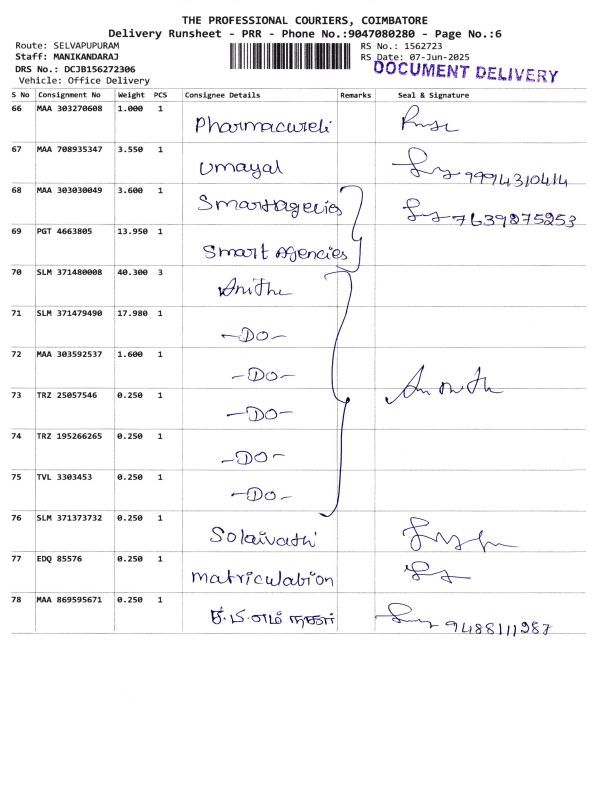 THE PROFESSIONAL COURIERS, COIMBATORE
Delivery Runsheet - PRR - Phone No.:9047080280 - Page No.:6
Route: SELVAPUPURAM RS No.: 1562723
Staff: MANIKANDARAJ RS Date: 07-Jun-2025
DRS No.: DCJB156272306 DOCUMENT DELIVERY
Vehicle: Office Delivery
S No Consignment No Weight PCS Consignee Details Remarks Seal & Signature
66 MAA 303270608 1.000 1
67 MAA 708935347 3.550 1 Umayal 9994310414
68 MAA 303030049 3.600 1 Smartagecies 7639875253
69 PGT 4663805 13.950 1 Smart Agencies
70 SLM 371480008 40.300 3 Anithe
71 SLM 371479490 17.980 1 -DO-
72 MAA 303592537 1.600 1 -DO-
73 TRZ 25057546 0.250 1 -DO-
74 TRZ 195266265 0.250 1 -DO-
75 TVL 3303453 0.250 1 -DO-
76 SLM 371373732 0.250 1
77 EDQ 85576 0.250 1 matriculation
78 MAA 869595671 0.250 1 9488111987